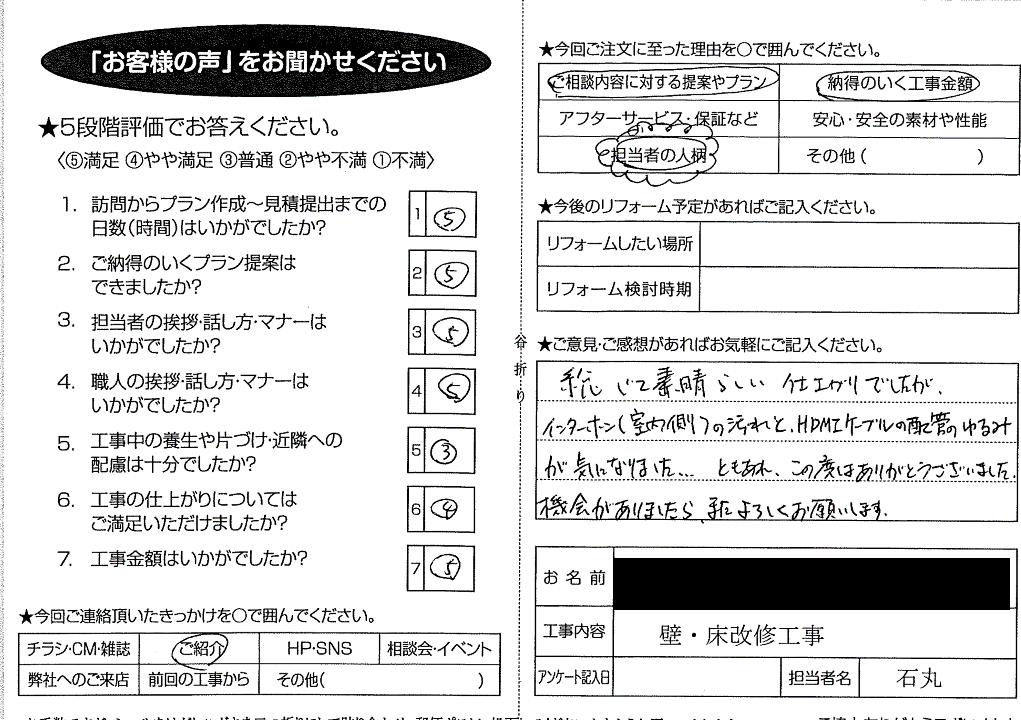 「お客様の声」をお聞かせください
★5段階評価でお答えください。
〈⑤満足 ④やや満足 ③普通 ②やや不満 ①不満〉
1. 訪問からプラン作成〜見積提出までの
日数(時間)はいかがでしたか?
1 ⑤
2. ご納得のいくプラン提案は
できましたか?
2 ⑤
3. 担当者の挨拶・話し方・マナーは
いかがでしたか?
3 ⑤
4. 職人の挨拶・話し方・マナーは
いかがでしたか?
4 ⑤
5. 工事中の養生や片づけ・近隣への
配慮は十分でしたか?
5 ③
6. 工事の仕上がりについては
ご満足いただけましたか?
6 ④
7. 工事金額はいかがでしたか?
7 ⑤
★今回ご連絡頂いたきっかけを〇で囲んでください。
チラシ・CM・雑誌 ご紹介 HP・SNS 相談会・イベント
弊社へのご来店 前回の工事から その他( )
谷折り
★今回ご注文に至った理由を〇で囲んでください。
ご相談内容に対する提案やプラン 納得のいく工事金額
アフターサービス・保証など 安心・安全の素材や性能
担当者の人柄 その他( )
★今後のリフォーム予定があればご記入ください。
リフォームしたい場所
リフォーム検討時期
★ご意見・ご感想があればお気軽にご記入ください。
総じて素晴らしい 仕上がりでしたが、
インターホン(室内側)の汚れと、HDMIケーブルの配管のゆるみ
が気になりました… ともあれ、この度はありがとうございました。
機会がありましたら、またよろしくお願いします。
お名前
工事内容 壁・床改修工事
アンケート記入日 担当者名 石丸